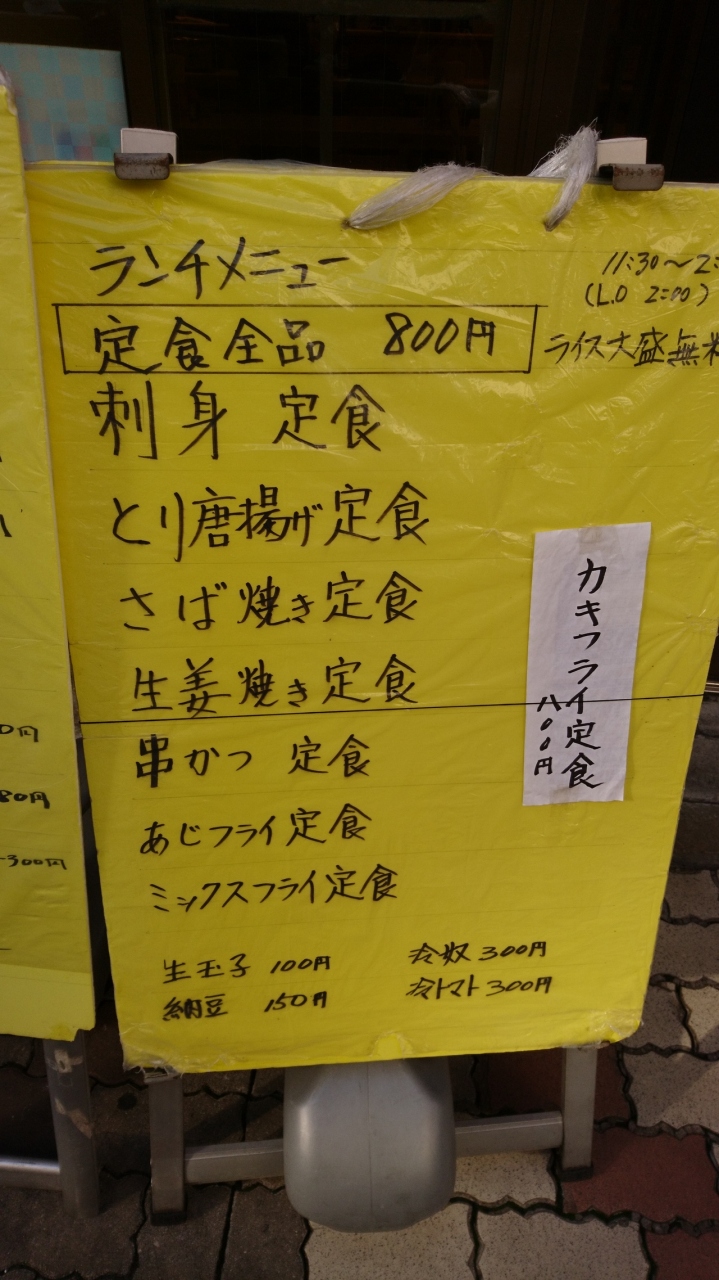 ランチメニュー
11:30～2:
(L.O 2:00)
定食全品 800円
ライス大盛無料
刺身 定食
とり唐揚げ定食
さば焼き定食
生姜焼き定食
串かつ 定食
あじフライ定食
ミックスフライ定食
カキフライ定食
八〇〇円
生玉子 100円
納豆 150円
冷奴 300円
冷トマト 300円
0円
80円
300円